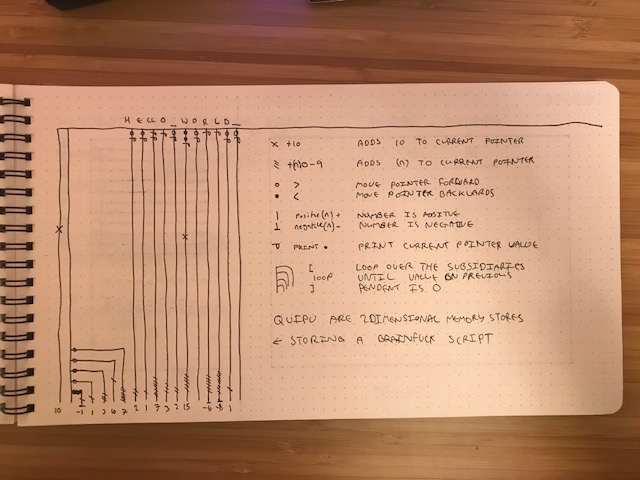 HELLO_WORLD_
× +10 ADDS 10 TO CURRENT POINTER
+(n)0-9 ADDS (n) TO CURRENT POINTER
o > MOVE POINTER FORWARD
• < MOVE POINTER BACKWARDS
| positive(n) + NUMBER IS POSITIVE
⊥ negative(n) - NUMBER IS NEGATIVE
P PRINT • PRINT CURRENT POINTER VALUE
[ LOOP OVER THE SUBSIDIARIES
loop UNTIL VALUE ON PREVIOUS
] PENDENT IS 0
QUIPU ARE 2DIMENSIONAL MEMORY STORES
← STORING A BRAINFUCK SCRIPT
10 -1 1 3 6 7 2 1 7 3 2 15 -6 -8 1